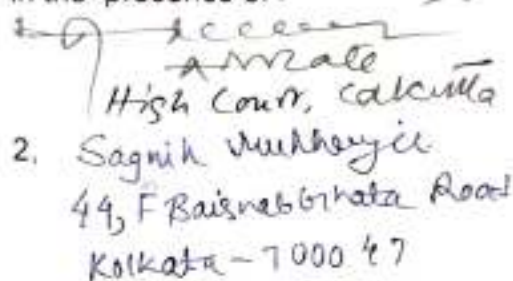 in the presence of
1.
High Court, Calcutta
2. Sagnik Mukherjee
44, F Baisnabghata Road
Kolkata - 700047